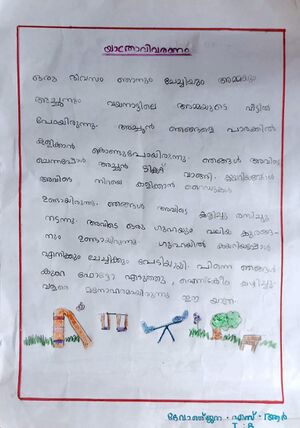 യാത്രാവിവരണം
ഒരു ദിവസം ഞാനും ചേച്ചിയും അമ്മയും
അച്ഛനും വയനാട്ടിലെ അമ്മയുടെ വീട്ടിൽ
പോയിരുന്നു. അച്ഛൻ ഞങ്ങളെ പാർക്കിൽ
കളിക്കാൻ കൊണ്ടുപോയിരുന്നു. ഞങ്ങൾ അവിടെ
ചെന്നപ്പോൾ അച്ഛൻ ടിക്കറ്റ് വാങ്ങി.
അവിടെ നിറയെ കളിക്കാൻ റൈഡുകൾ
ഉണ്ടായിരുന്നു. ഞങ്ങൾ അവിടെ കളിച്ചു രസിച്ചു
നടന്നു. അവിടെ ഒരു ഗുഹയും വലിയ കുരങ്ങ
നും ഉണ്ടായിരുന്നു. ഗുഹയിൽ കയറിയപ്പോൾ
എനിക്കും ചേച്ചിക്കും പേടിയായി. പിന്നെ ഞങ്ങൾ
കുറെ ഫോട്ടോ എടുത്തു, ഐസ്ക്രീം കഴിച്ചു.
വളരെ മനോഹരമായിരുന്നു ഈ യാത്ര.
ദേവാഞ്ജന. എസ്. ആർ